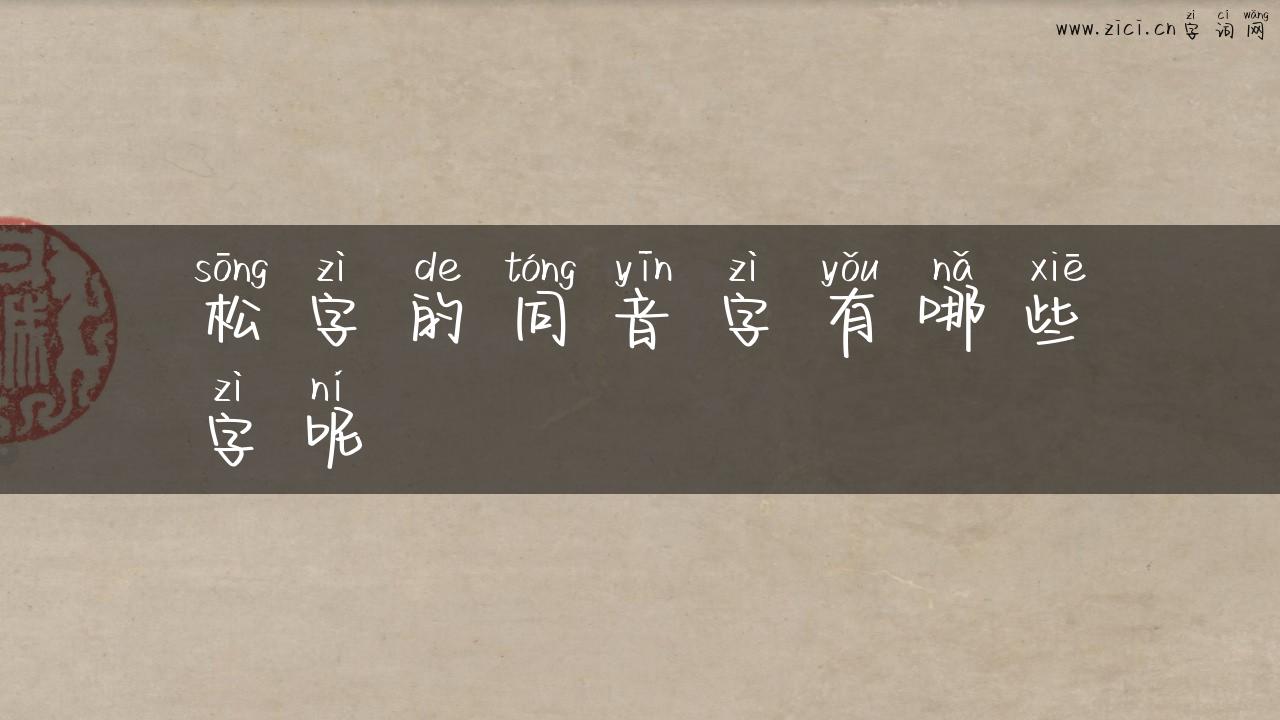 zì cí wǎng
www.zici.cn 字词网
sōng zì de tóng yīn zì yǒu nǎ xiē
松字的同音字有哪些
zì ní
字呢